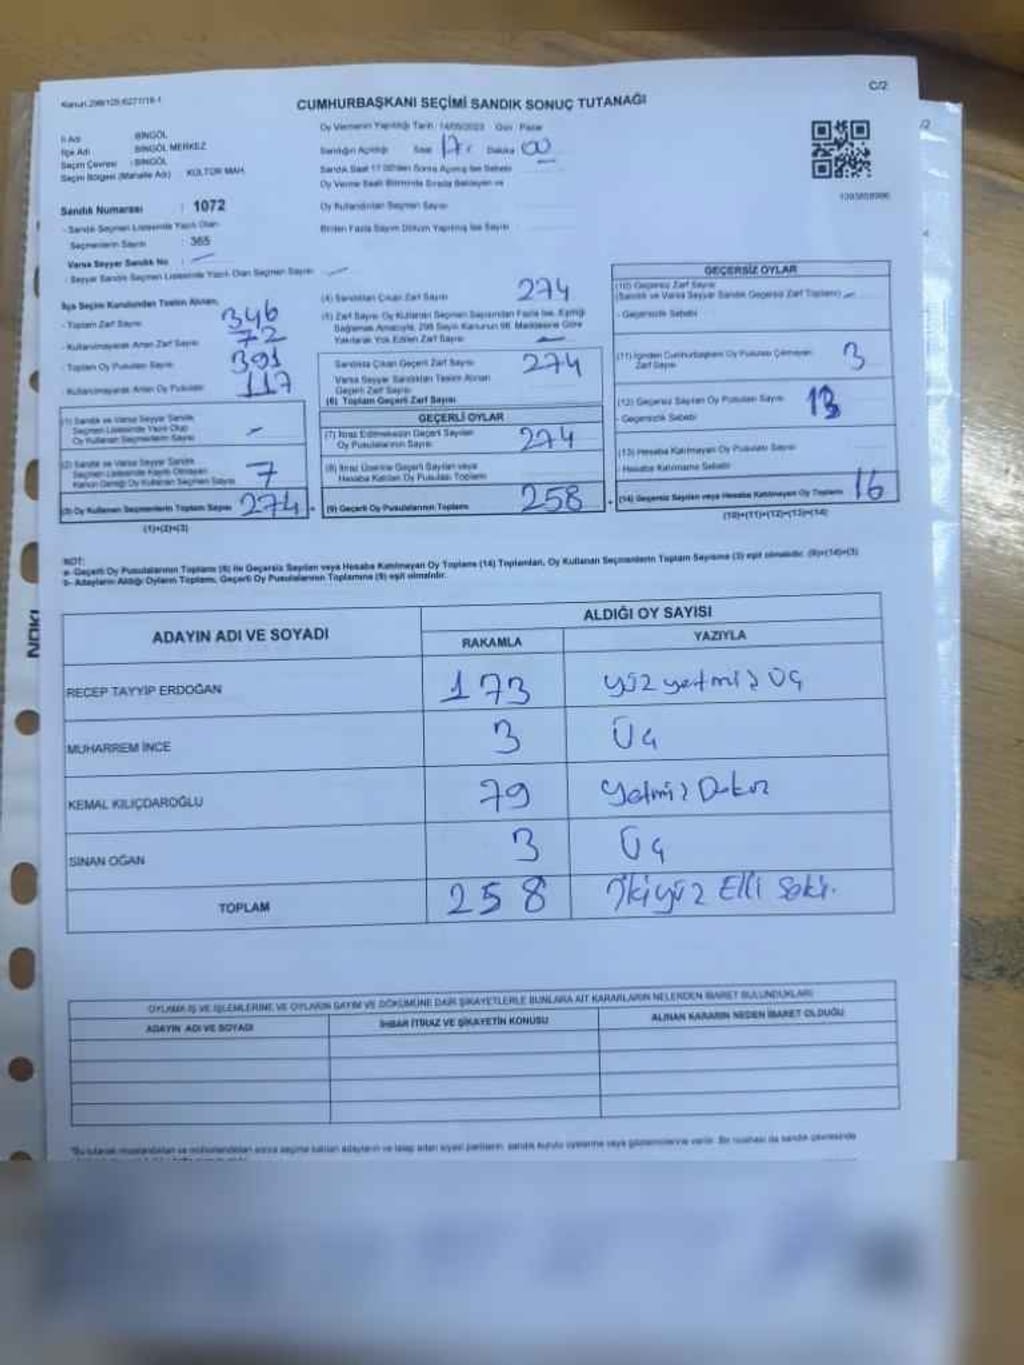 Kanun 298/105;6271/18-1
C/2
CUMHURBAŞKANI SEÇİMİ SANDIK SONUÇ TUTANAĞI
İl Adı BİNGÖL
İlçe Adı BİNGÖL MERKEZ
Seçim Çevresi : BİNGÖL
Seçim Bölgesi (Mahalle Adı) KÜLTÜR MAH.
Oy Vermenin Yapıldığı Tarih: 14/05/2023 Gün : Pazar
Sandığın Açıldığı Saat 17 Dakika 00
Sandık Saat 17:00'den Sonra Açılmış İse Sebebi
Oy Verme Saati Bitiminde Sırada Bekleyen ve
Oy Kullandırılan Seçmen Sayısı
Birden Fazla Sayım Döküm Yapılmış İse Sayısı
Sandık Numarası : 1072
- Sandık Seçmen Listesinde Yazılı Olan
Seçmenlerin Sayısı : 365
Varsa Seyyar Sandık No
- Seyyar Sandık Seçmen Listesinde Yazılı Olan Seçmen Sayısı
İlçe Seçim Kurulundan Teslim Alınan;
- Toplam Zarf Sayısı 346
- Kullanılmayarak Artan Zarf Sayısı 72
- Toplam Oy Pusulası Sayısı 391
- Kullanılmayarak Artan Oy Pusulası 117
(1) Sandık ve Varsa Seyyar Sandık
Seçmen Listesinde Yazılı Olup
Oy Kullanan Seçmenlerin Sayısı -
(2) Sandık ve Varsa Seyyar Sandık
Seçmen Listesinde Kayıtlı Olmayan
Kanun Gereği Oy Kullanan Seçmen Sayısı 7
(3) Oy Kullanan Seçmenlerin Toplam Sayısı 274
(1)+(2)=(3)
(4) Sandıktan Çıkan Zarf Sayısı 274
(5) Zarf Sayısı Oy Kullanan Seçmen Sayısından Fazla İse, Eşitliği
Sağlamak Amacıyla, 298 Sayılı Kanunun 98. Maddesine Göre
Yakılarak Yok Edilen Zarf Sayısı
Sandıkta Çıkan Geçerli Zarf Sayısı 274
Varsa Seyyar Sandıktan Teslim Alınan
Geçerli Zarf Sayısı
(6) Toplam Geçerli Zarf Sayısı
GEÇERLİ OYLAR
(7) İtiraz Edilmeksizin Geçerli Sayılan
Oy Pusulalarının Sayısı 274
(8) İtiraz Üzerine Geçerli Sayılan veya
Hesaba Katılan Oy Pusulası Toplamı
(9) Geçerli Oy Pusulalarının Toplamı 258
GEÇERSİZ OYLAR
(10) Geçersiz Zarf Sayısı
(Sandık ve Varsa Seyyar Sandık Geçersiz Zarf Toplamı)
- Geçersizlik Sebebi
(11) İçinden Cumhurbaşkanı Oy Pusulası Çıkmayan
Zarf Sayısı 3
(12) Geçersiz Sayılan Oy Pusulası Sayısı 13
- Geçersizlik Sebebi
(13) Hesaba Katılmayan Oy Pusulası Sayısı
- Hesaba Katılmama Sebebi
(14) Geçersiz Sayılan veya Hesaba Katılmayan Oy Toplamı 16
(10)+(11)+(12)+(13)=(14)
NOT:
a- Geçerli Oy Pusulalarının Toplamı (9) ile Geçersiz Sayılan veya Hesaba Katılmayan Oy Toplamı (14) Toplamları, Oy Kullanan Seçmenlerin Toplam Sayısına (3) eşit olmalıdır. (9)+(14)=(3)
b- Adayların Aldığı Oyların Toplamı, Geçerli Oy Pusulalarının Toplamına (9) eşit olmalıdır.
ADAYIN ADI VE SOYADI
ALDIĞI OY SAYISI
RAKAMLA YAZIYLA
RECEP TAYYİP ERDOĞAN 173 yüz yetmiş üç
MUHARREM İNCE 3 Üç
KEMAL KILIÇDAROĞLU 79 Yetmiş Dokuz
SİNAN OĞAN 3 Üç
TOPLAM 258 İkiyüz Elli Seki.
OYLAMA İŞ VE İŞLEMLERİNE VE OYLARIN SAYIM VE DÖKÜMÜNE DAİR ŞİKAYETLERLE BUNLARA AİT KARARLARIN NELERDEN İBARET BULUNDUKLARI
ADAYIN ADI VE SOYADI
İHBAR İTİRAZ VE ŞİKAYETİN KONUSU
ALINAN KARARIN NEDEN İBARET OLDUĞU
NOKI